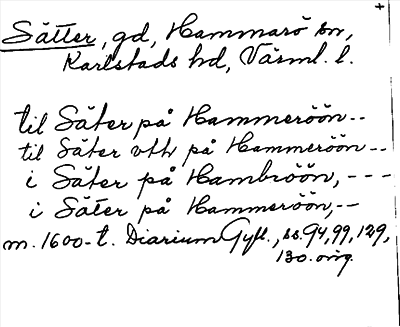 Sätter, gd, Hammarö sn,
Karlstads hd, Värml. l.
til Säter på Hammeröön--
til Säter vthr på Hammeröön--
i Säter på Hambröön, ---
i Säter på Hammeröön, --
m. 1600-t. Diarium Gyll., ss. 94, 99, 129,
130. orig.